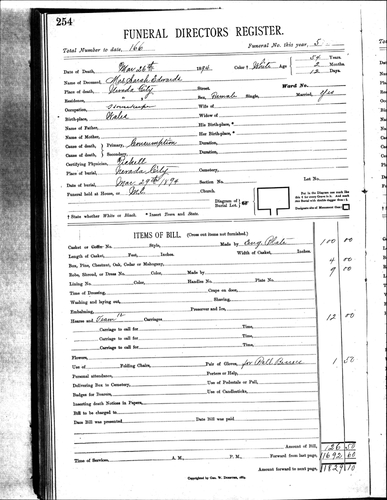 254
FUNERAL DIRECTORS REGISTER.
Total Number to date, 166 Funeral No. this year, 5
Date of Death, Mar 26th 1894 Color † White Age 54 Years.
2 Months
Name of Deceased, Mrs Sarah Edwards 12 Days.
Place of death, Nevada City Street. Ward No.
Residence, " " Sex, Female Single, Married, Yes
Occupation, Housekeeper Wife of
Birth-place, Wales Widow of
Name of Father, His Birth-place, *
Name of Mother, Her Birth-place, *
Cause of death, Primary, Consumption Duration,
Cause of death, Secondary, Duration,
Certifying Physician,
Place of burial, Nevada City Cemetery,
Date of burial, Mar 29th 1894 Section No. Lot No.
Funeral held at House, or Church.
Diagram of Burial Lot.
† State whether White or Black. * Insert Town and State.
ITEMS OF BILL. (Cross out items not furnished.)
Casket or Coffin No. Style, Made by Eng. Plate 100 00
Length of Casket, Feet, Inches. Width of Casket, Inches.
Box, Pine, Chestnut, Oak, Cedar or Mahogany, 4 00
Robe, Shroud, or Dress No. Color, Made by 9 00
Lining No. Color, Handles No. Plate No.
Time of Dressing, Crape on door,
Washing and laying out, Shaving,
Embalming, Preserver and Ice,
Hearse and Team 12 Carriages. 12 00
Carriage to call for Time,
Carriage to call for Time,
Carriage to call for Time,
Carriage to call for Time,
Flowers,
Use of Folding Chairs, Pair of Gloves, for Pall Bearers 1 50
Personal attendance, Porters or Help,
Delivering Box to Cemetery, Use of Pedestals or Pall,
Badges for Bearers, Use of Candlesticks,
Inserting death Notices in Papers,
Bill to be charged to
Date Bill was presented Date Bill was paid
Amount of Bill, 126 50
Forward from last page, 1692 60
Time of Services, A. M., P. M. Amount forward to next page, 1829 10
Copyrighted by Geo. W.